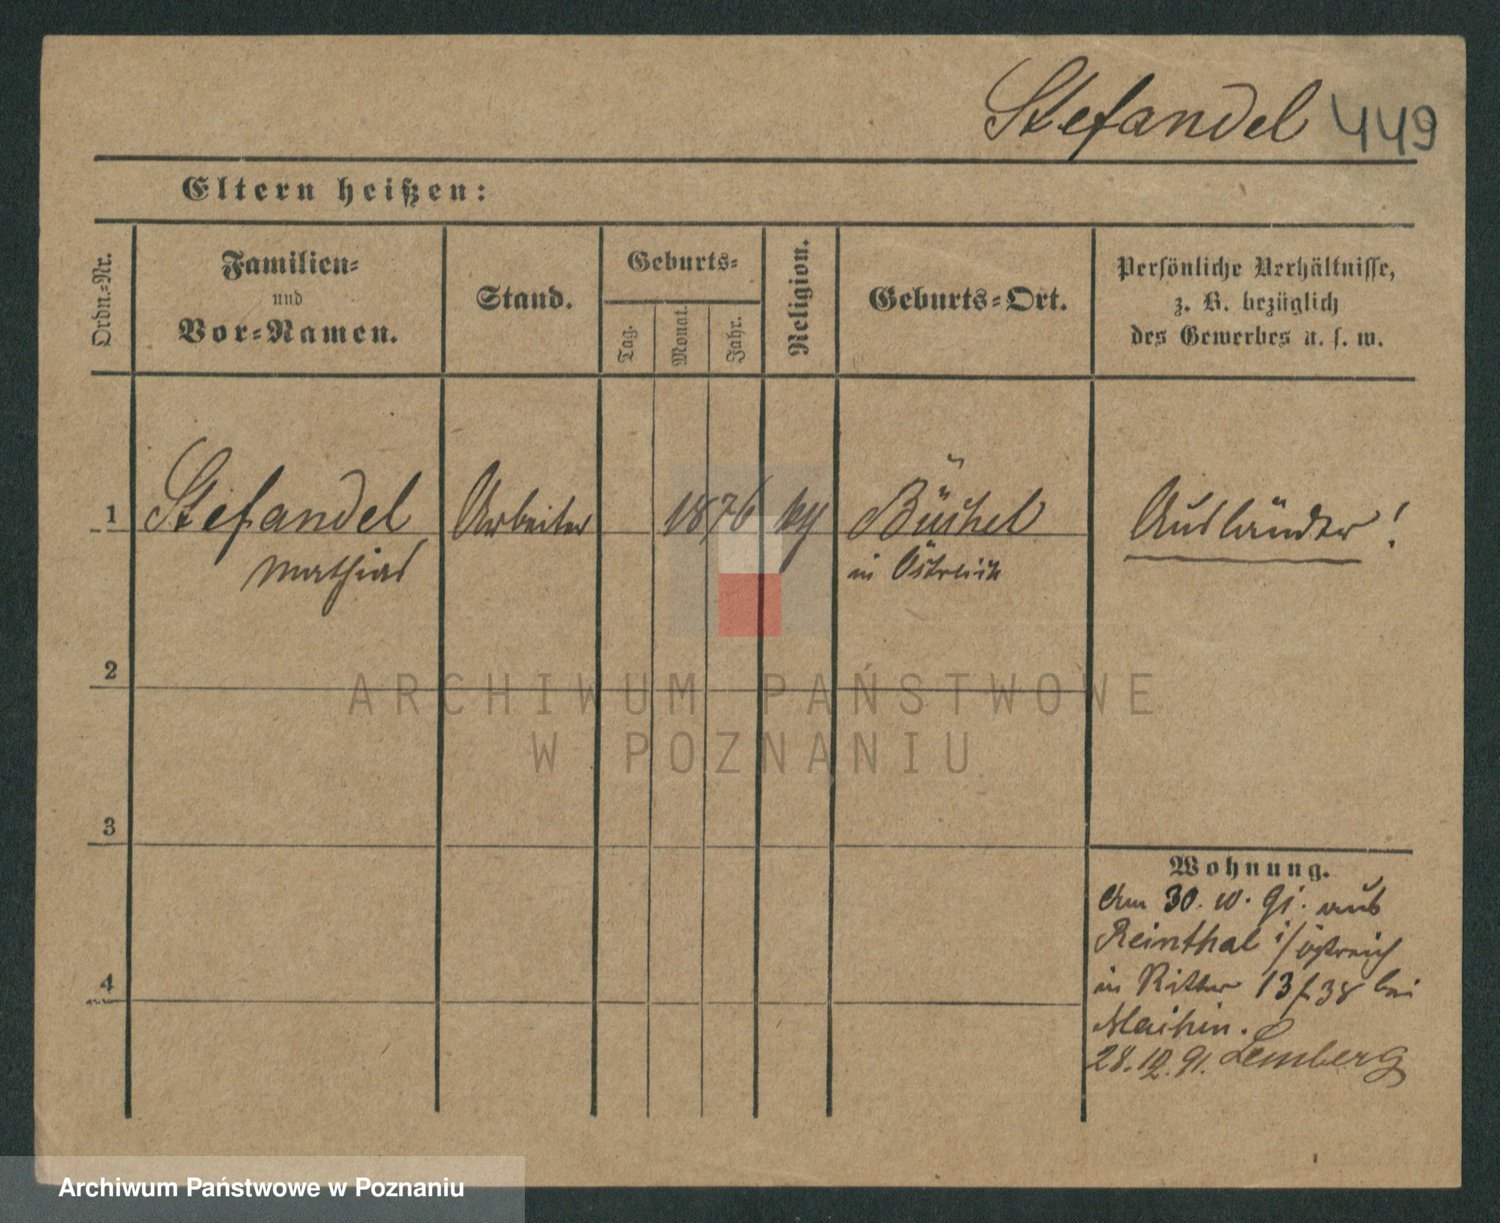 Stefandel 449
Eltern heißen:
Ordn.-Nr.
Familien-
und
Vor-Namen.
Stand.
Geburts-
Tag.
Monat.
Jahr.
Religion.
Geburts-Ort.
Persönliche Verhältnisse,
z. B. bezüglich
des Gewerbes u. s. w.
1 Stefandel Arbeiter 1876 Ausländer!
Mathias in Östreich
2
3
4
Wohnung.
Am 30. 10. 91. aus
Reinthal i/ östreich
in Ritter 13 / 38 bei
28. 12. 91. Lemberg
ARCHIWUM PAŃSTWOWE
W POZNANIU
Archiwum Państwowe w Poznaniu